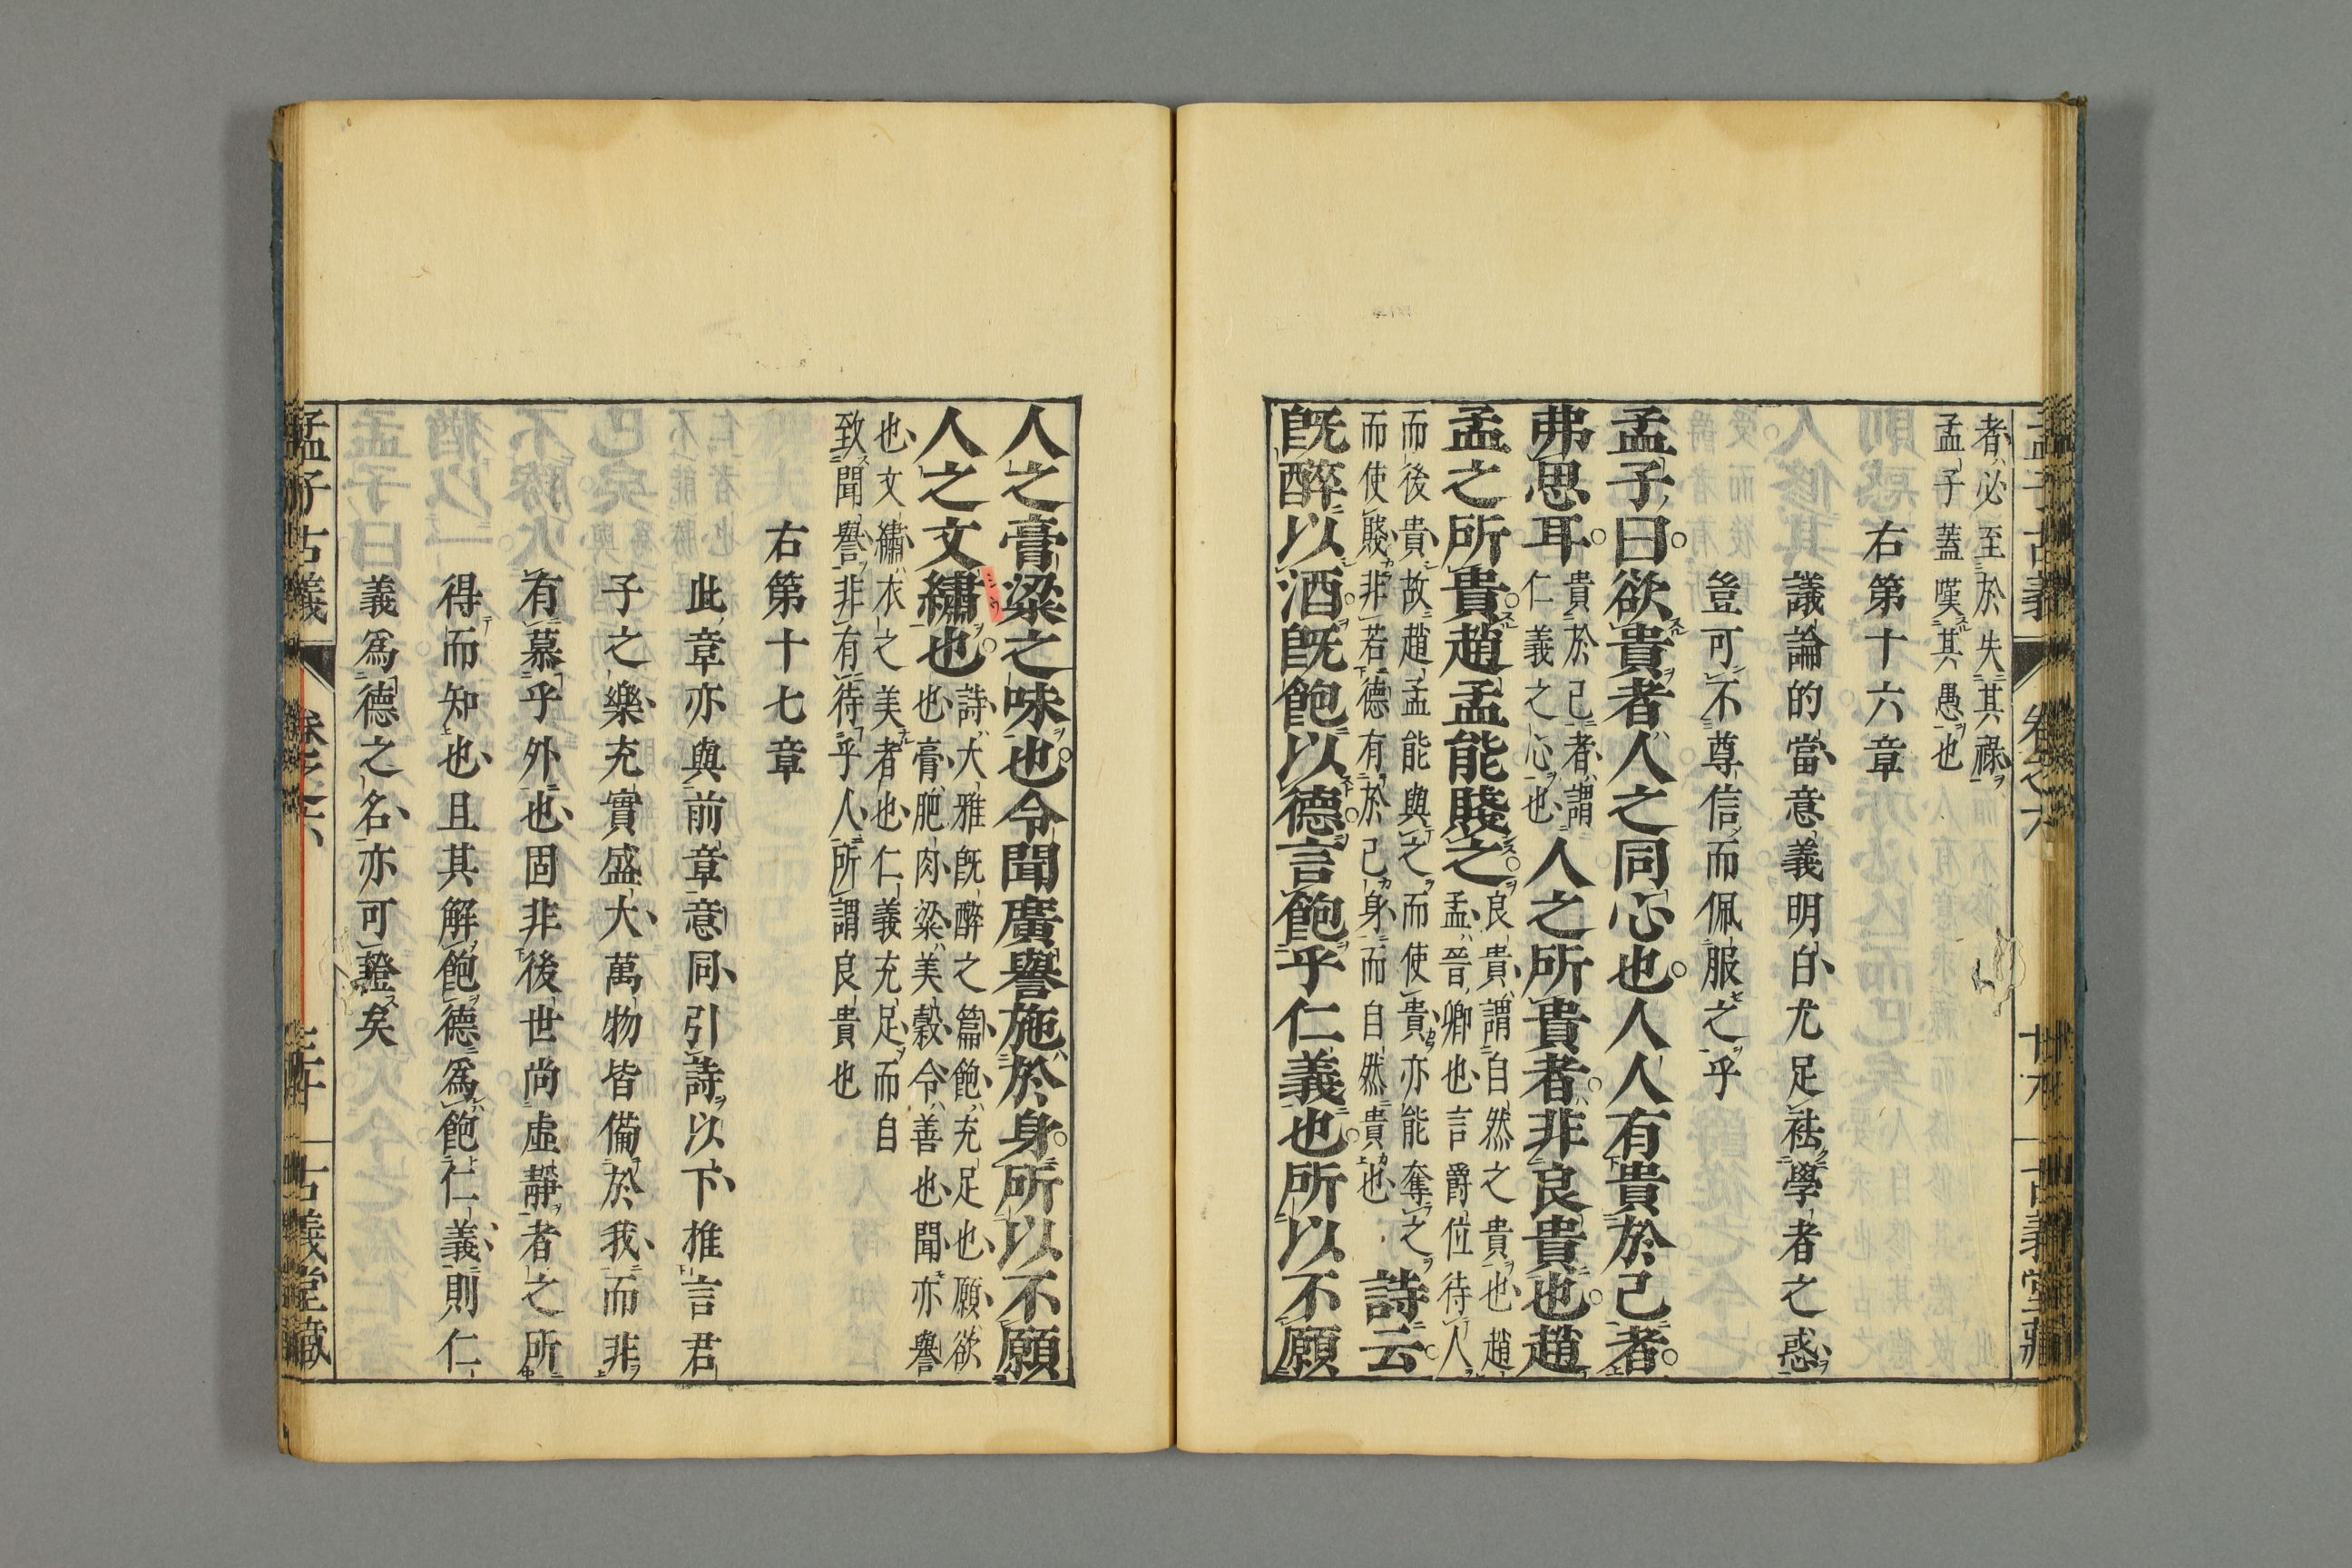 者必至於失其祿
孟子蓋嘆其愚也
右第十六章
議論的當意義明白尤足袪學者之惑
豈可不尊信而佩服之乎
孟子曰欲貴者人之同心也人人有貴於己者
弗思耳
貴於己者謂
仁義之心也
人之所貴者非良貴也趙
孟之所貴趙孟能賤之
良貴謂自然之貴也趙
孟晉卿也言爵位待人
而後貴故趙孟能與之而使貴亦能奪之
而使賤非若德有於己身而自然貴也
詩云
旣醉以酒旣飽以德言飽乎仁義也所以不願
人之膏粱之味也令聞廣譽施於身所以不願
人之文繡也
シウ
詩大雅旣醉之篇飽充足也願欲
也膏肥肉粱美穀令善也聞亦譽
也文繡衣之美者也仁義充足而自
致聞譽非有待乎人所謂良貴也
右第十七章
此章亦與前章意同引詩以下推言君
子之樂充實盛大萬物皆備於我而非
有慕乎外也固非後世尚虛靜者之所
得而知也且其解飽德爲飽仁義則仁
義爲德之名亦可證矣
孟子古義 卷之六 古義堂藏